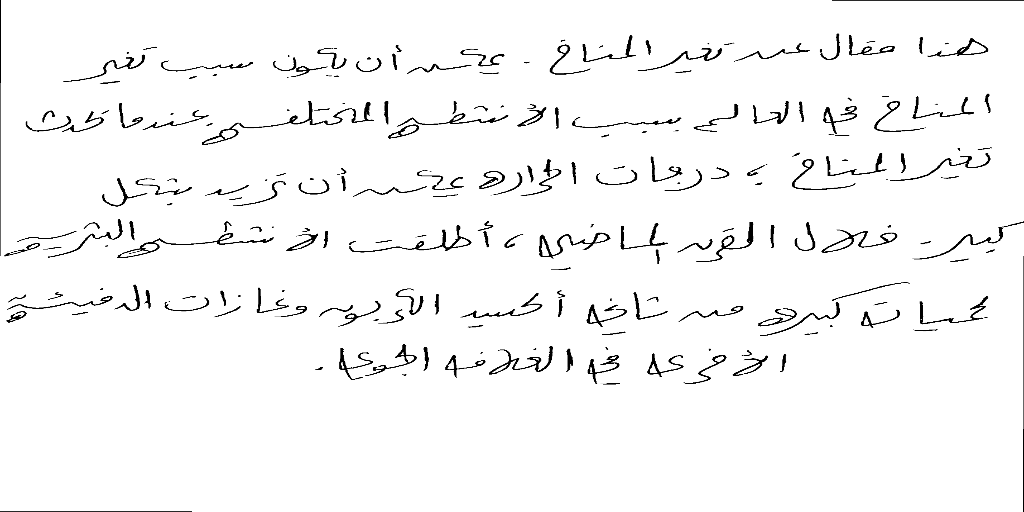 هذا مقال عن تغير المناخ. يمكن أن يكون سبب تغير
المناخ في العالم بسبب الأنشطة المختلفة. عندما يحدث
تغير المناخ، درجات الحرارة يمكن أن تزيد بشكل
كبير. خلال القرن الماضي، أطلقت الأنشطة البشرية
كميات كبيرة من ثاني أكسيد الكربون وغازات الدفيئة
الأخرى في الغلاف الجوي.